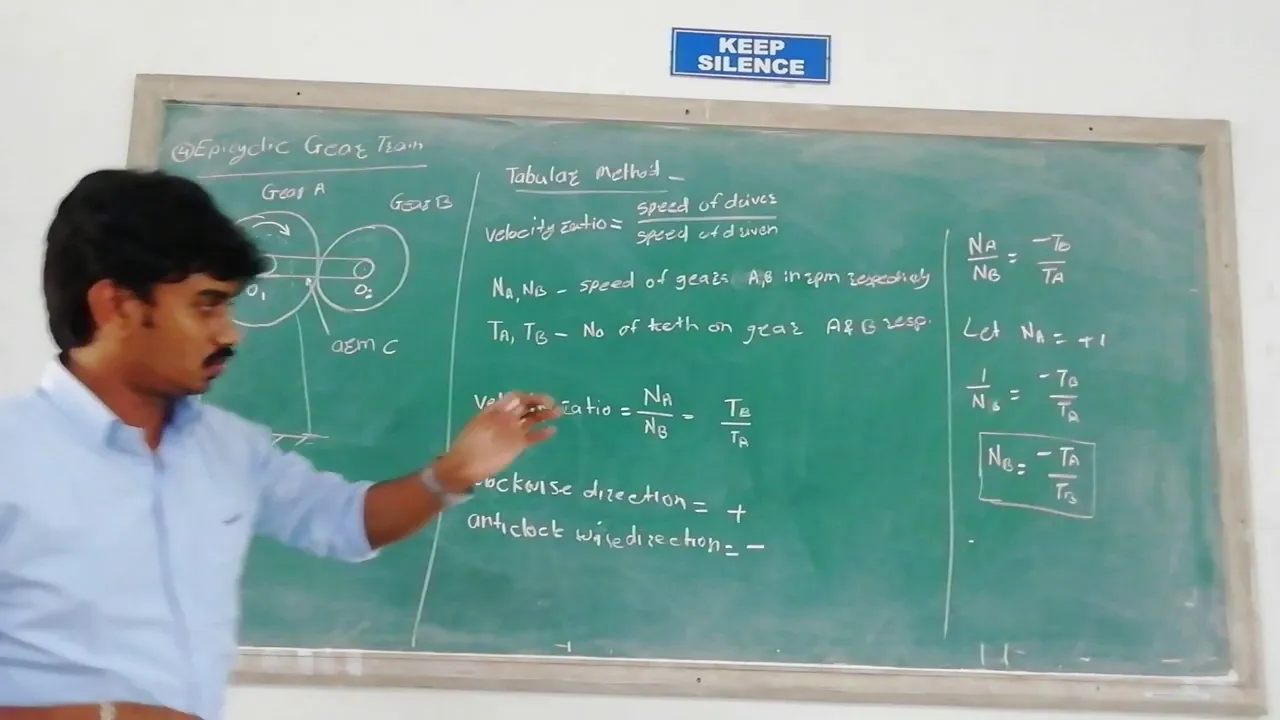 KEEP
SILENCE
④ Epicyclic Gear Train
Gear A
Gear B
O₁
O₂
arm C
Tabular Method -
velocity ratio = speed of driver / speed of driven
NA, NB - speed of gears A,B in rpm respectively
TA, TB - No of teeth on gear A & B resp.
ratio = NA/NB = TB/TA
clockwise direction = +
anticlock wise direction = -
NA/NB = -TB/TA
Let NA = +1
1/NB = -TB/TA
NB = -TA/TB